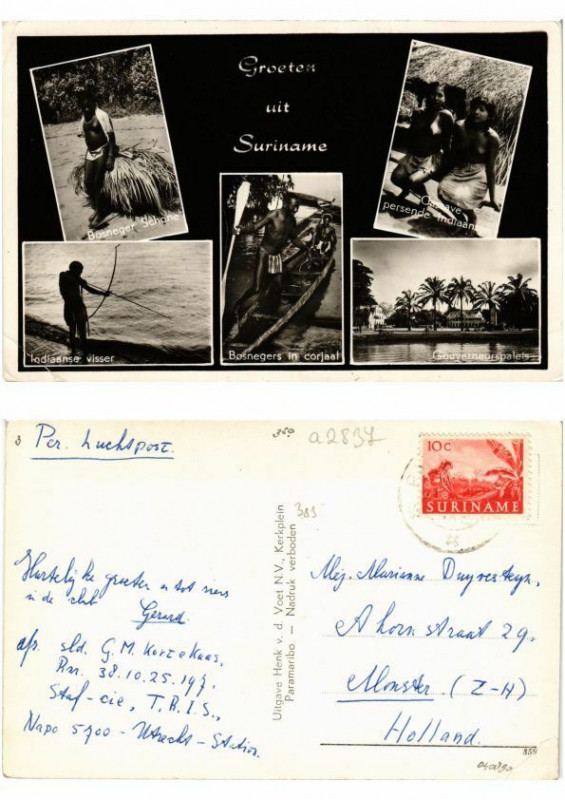 Groeten
uit
Suriname
Bosneger Schone
persende Indiaanse
Indiaanse visser
Bosnegers in corjaal
Gouverneurspaleis
3
Per Luchtpost.
350
a2837
10c
SURINAME
385
Uitgave Henk v. d. Voet N.V., Kerkplein
Paramaribo — Nadruk verboden
Hartelijke groeten en tot ziens
in de club
Gerard.
afz. sld. G. M. Kortekaas,
Rnr. 38.10.25.197.
Staf-cie, T.R.I.S.,
Napo 5700 - Utrecht - Station.
Mej. Marianne Duyvesteyn,
Ahornstraat 29.
Monster. (Z-H)
Holland.
359